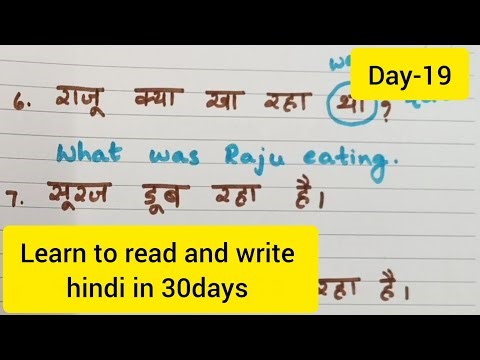 Day-19
6. राजू क्या खा रहा था?
What was Raju eating.
7. सूरज डूब रहा है।
Learn to read and write
hindi in 30days
रहा है।